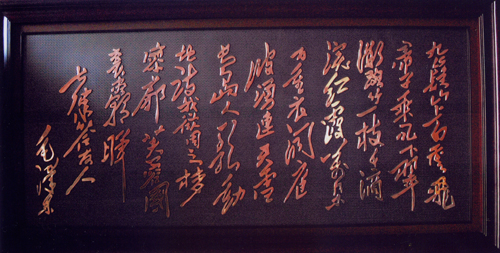 九嶷山上白雲飛
帝子乘风下翠
微斑竹一枝千滴
泪红霞萬朵
百重衣洞庭
波涌連天雪
长岛人歌动
地诗我欲因之梦
寥廓芙蓉國
裏尽朝晖
七律答友人
毛泽东